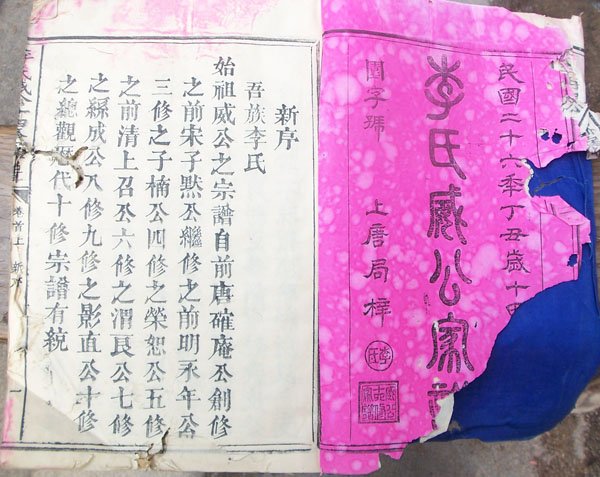 民國二十六秊丁丑歲十
李氏威公家譜
閏字號 上唐局梓
李氏
新序
吾族李氏
始祖威公之宗譜自前唐確庵公創修
之前宋子黙公繼修之前明永年公
三修之子楠公四修之榮恕公五修
之前清上召公六修之渭良公七修
之緜成公八修九修之影直公十修
之總觀歷代十修宗譜有統
卷首上 新序 一